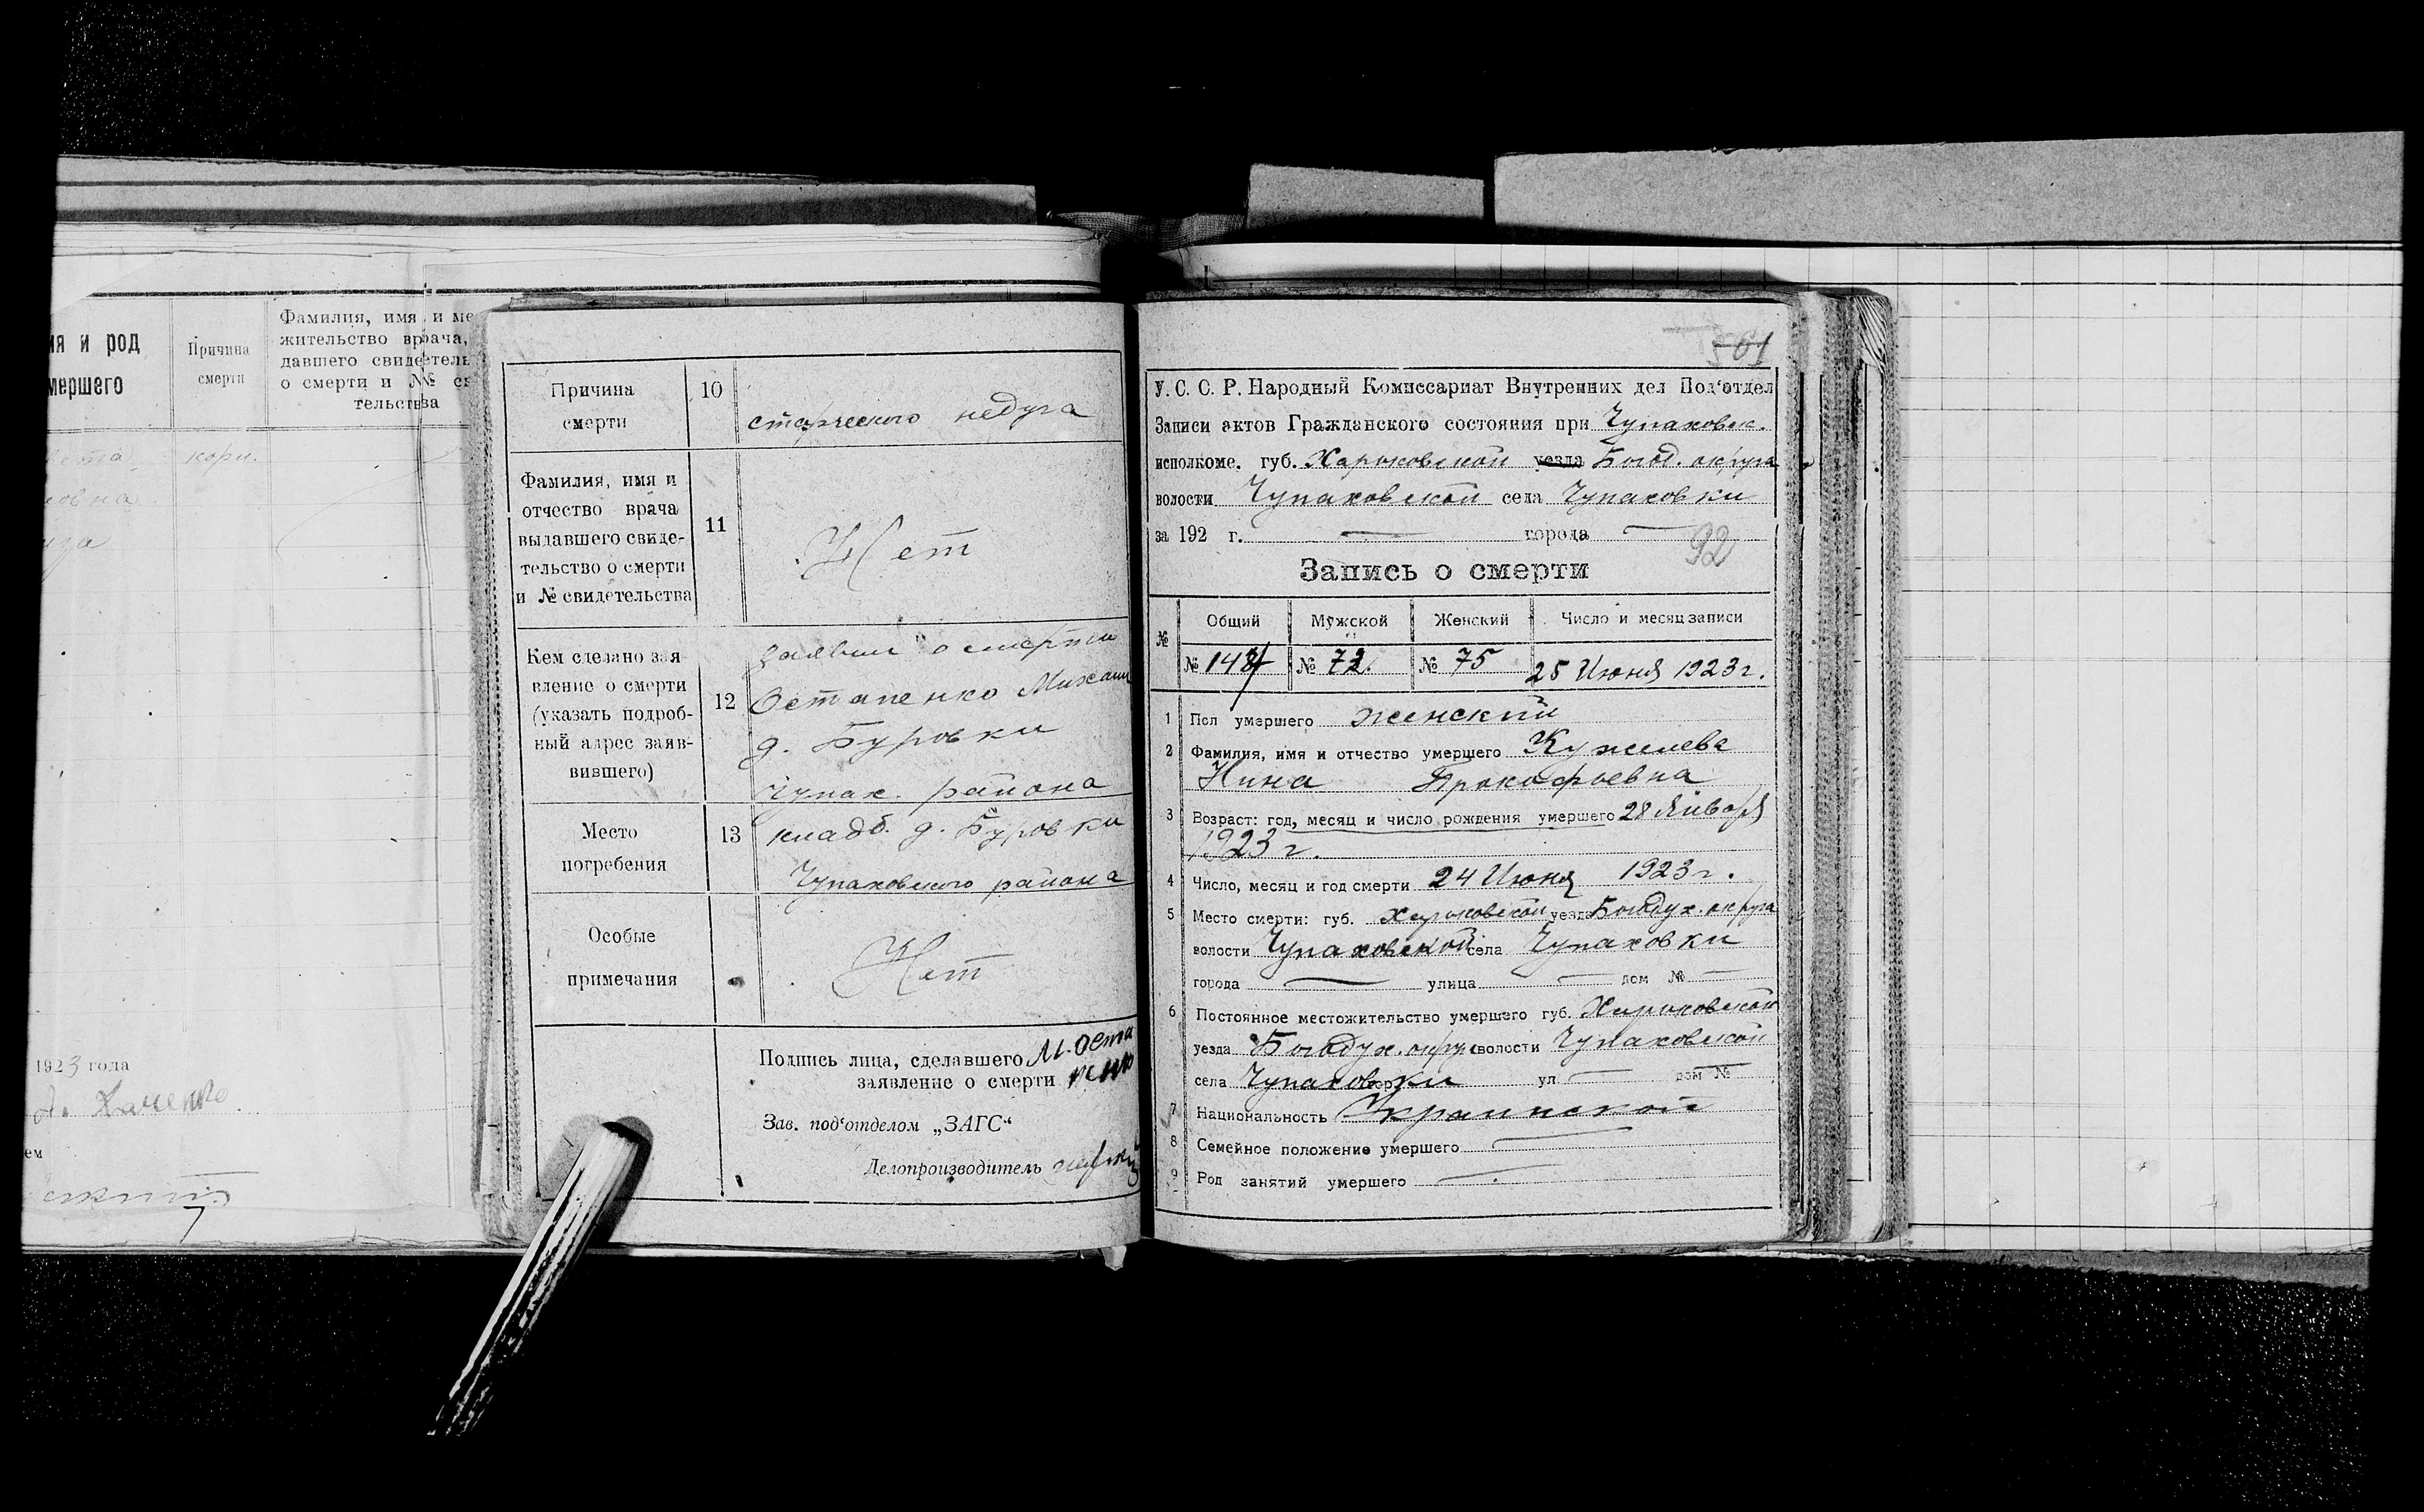 ия и род
мершего
Причина
смерти
Фамилия, имя и ме
жительство врача,
давшего свидетель
о смерти и № св
тельства
корь.
овна
1923 года
ем
7
Причина
смерти
10
старческого недуга
Фамилия, имя и
отчество врача
выдавшего свиде-
тельство о смерти
и № свидетельства
11
Нет
Кем сделано зая
вление о смерти
(указать подроб-
ный адрес заяв-
вившего)
12
Заявил о смерти
Остапенко Михаил
д. Буровки
Чупах. района
Место
погребения
13
кладб. д. Буровки
Чупаховского района
Особые
примечания
Нет
Подпись лица, сделавшего М. Оста
заявление о смерти пенко
Зав. под‘отделом „ЗАГС“
Делопроизводитель
501
У. С. С. Р. Народный Комиссариат Внутренних дел Под‘отдел
Записи актов Гражданского состояния при Чупаховск.
исполкоме. губ. Харьковской уезда Богод. округа
волости Чупаховской села Чупаховки
за 192 г. — города —
92
Запись о смерти
№ Общий Мужской Женский Число и месяц записи
№ 147 № 72. № 75 25 Июня 1923 г.
1 Пол умершего женский
2 Фамилия, имя и отчество умершего Кужелева
Нина Прокофьевна
3 Возраст: год, месяц и число рождения умершего 28 Января
1923 г.
4 Число, месяц и год смерти 24 Июня 1923 г.
5 Место смерти: губ. Харьковской уезда Богодух. округа
волости Чупаховской села Чупаховки
города — улица — дом № —
6 Постоянное местожительство умершего губ. Харьковской
уезда Богодух. округа волости Чупаховской
села Чупаховки ул — дом № —
7 Национальность Украинской
8 Семейное положение умершего —
9 Род занятий умершего —